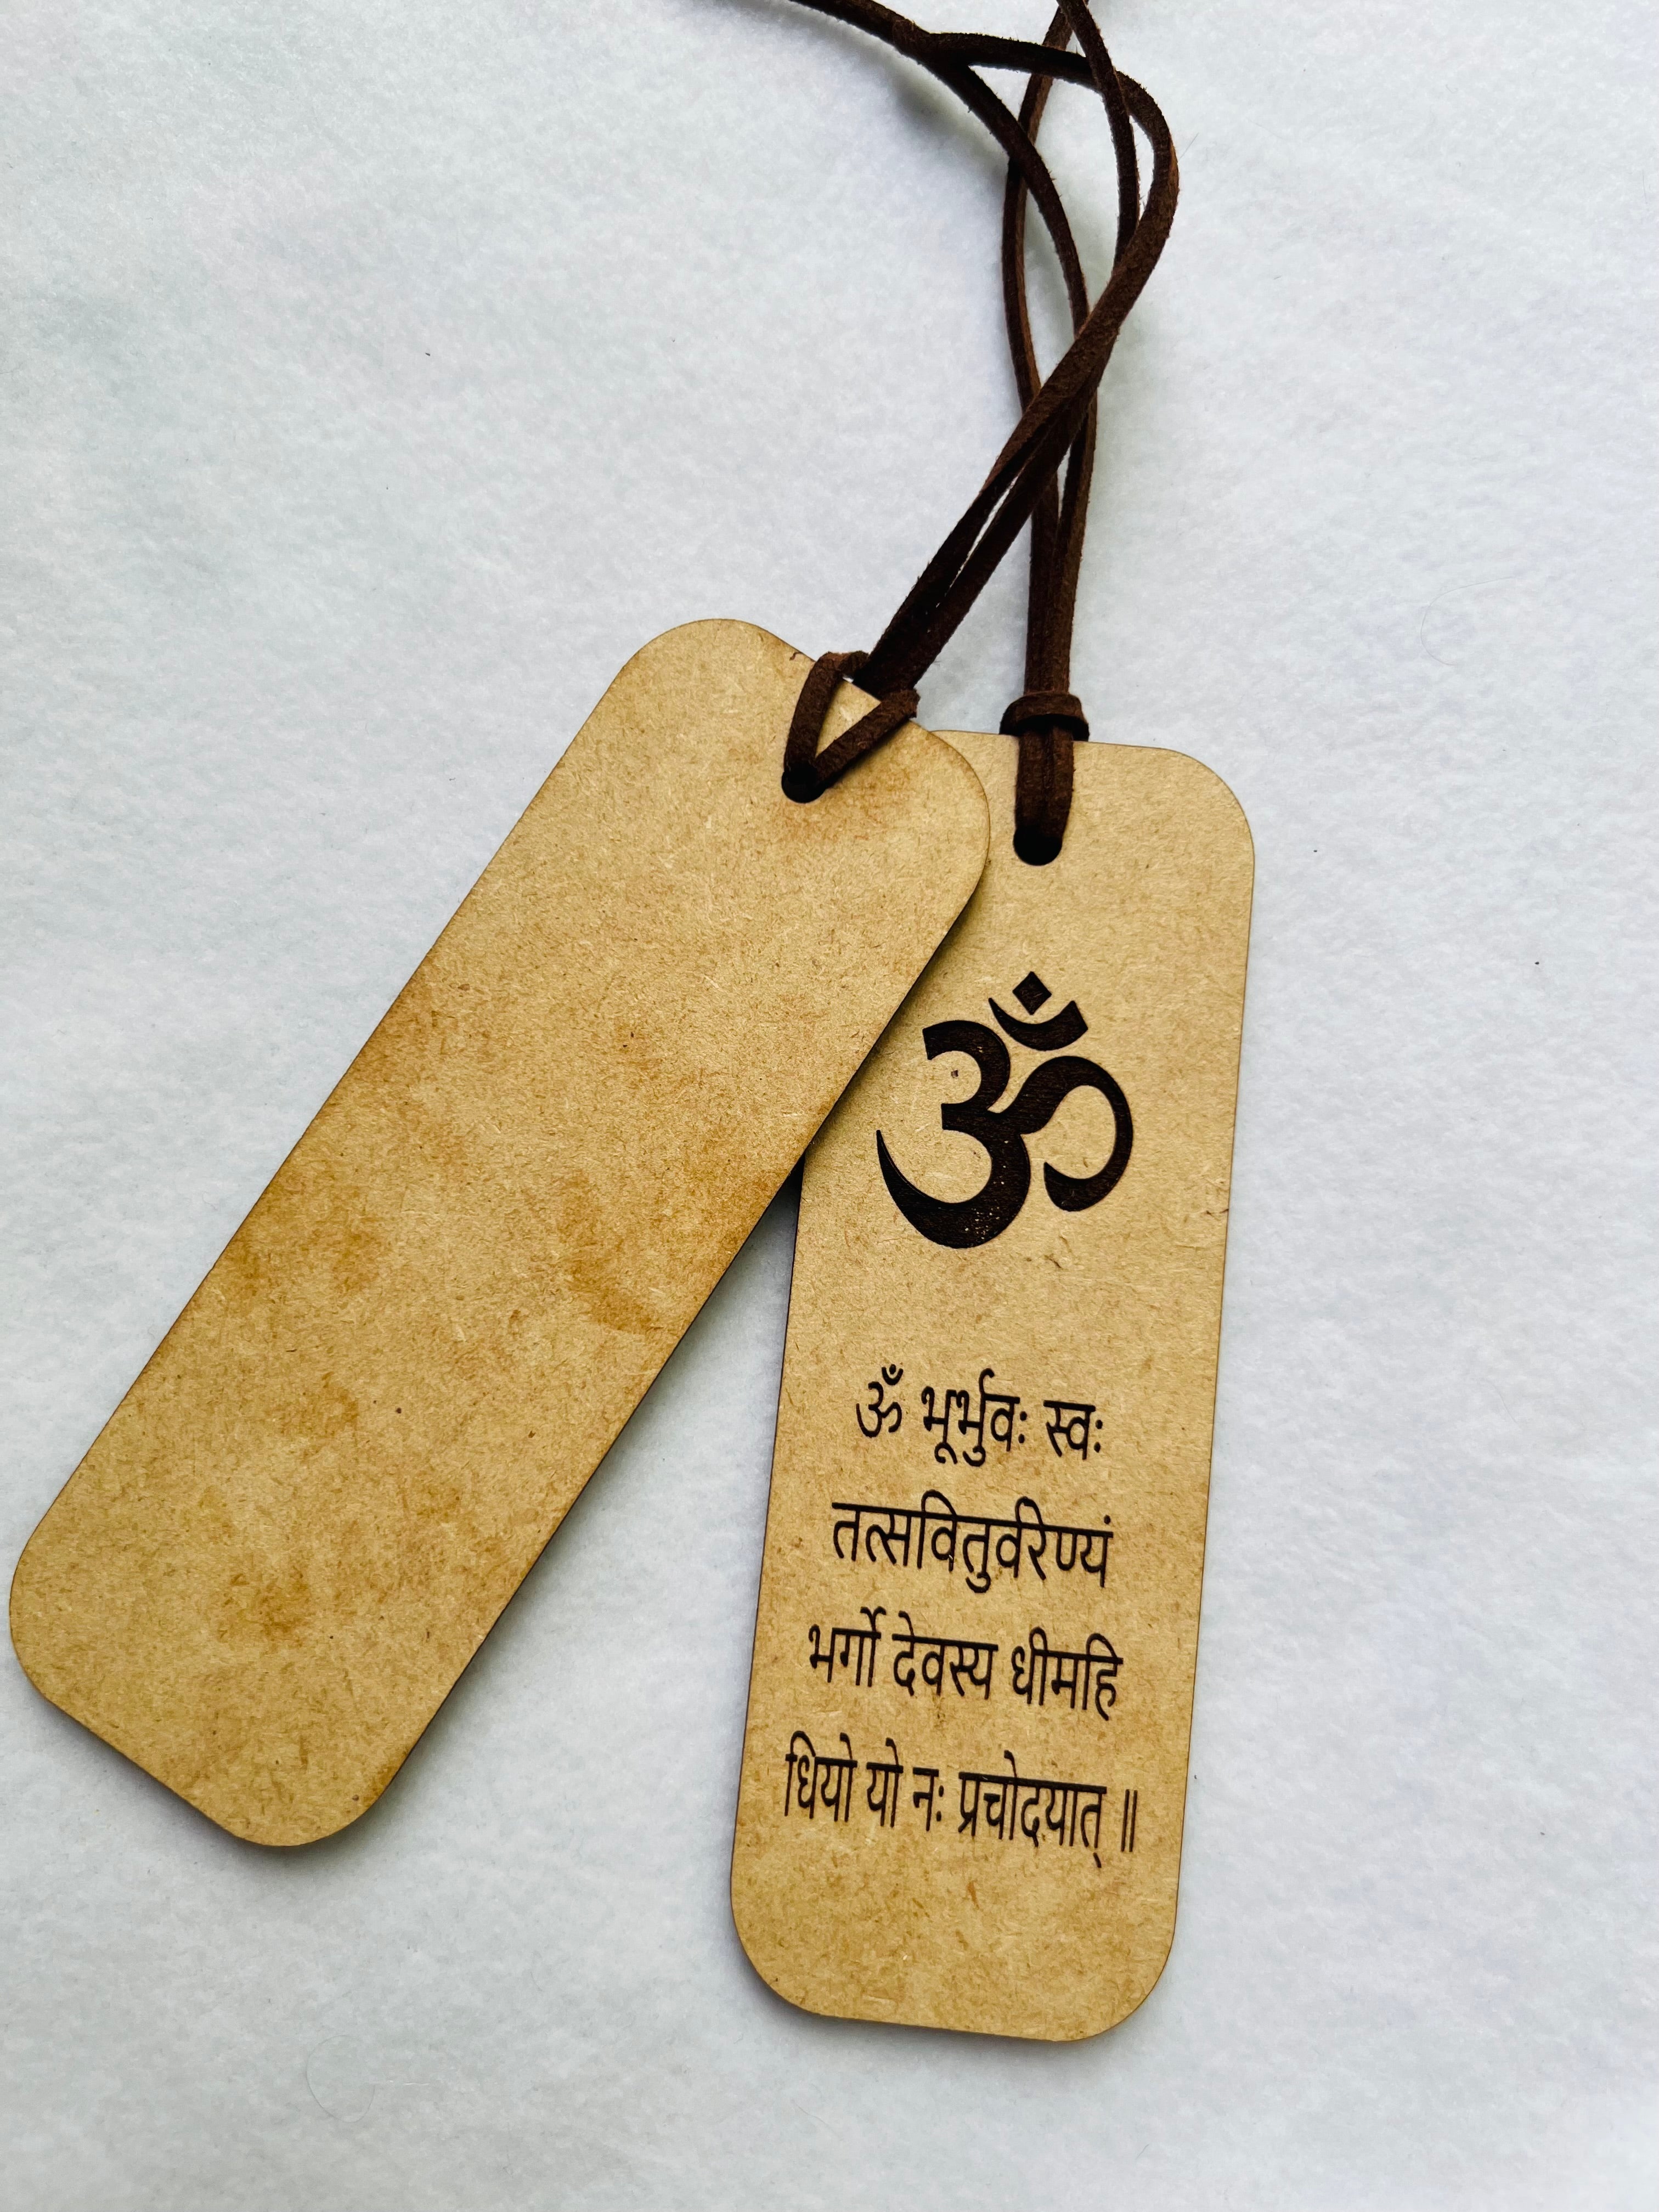 ॐ
ॐ भूर्भुवः स्वः
तत्सवितुर्वरेण्यं
भर्गो देवस्य धीमहि
धियो यो नः प्रचोदयात् ॥